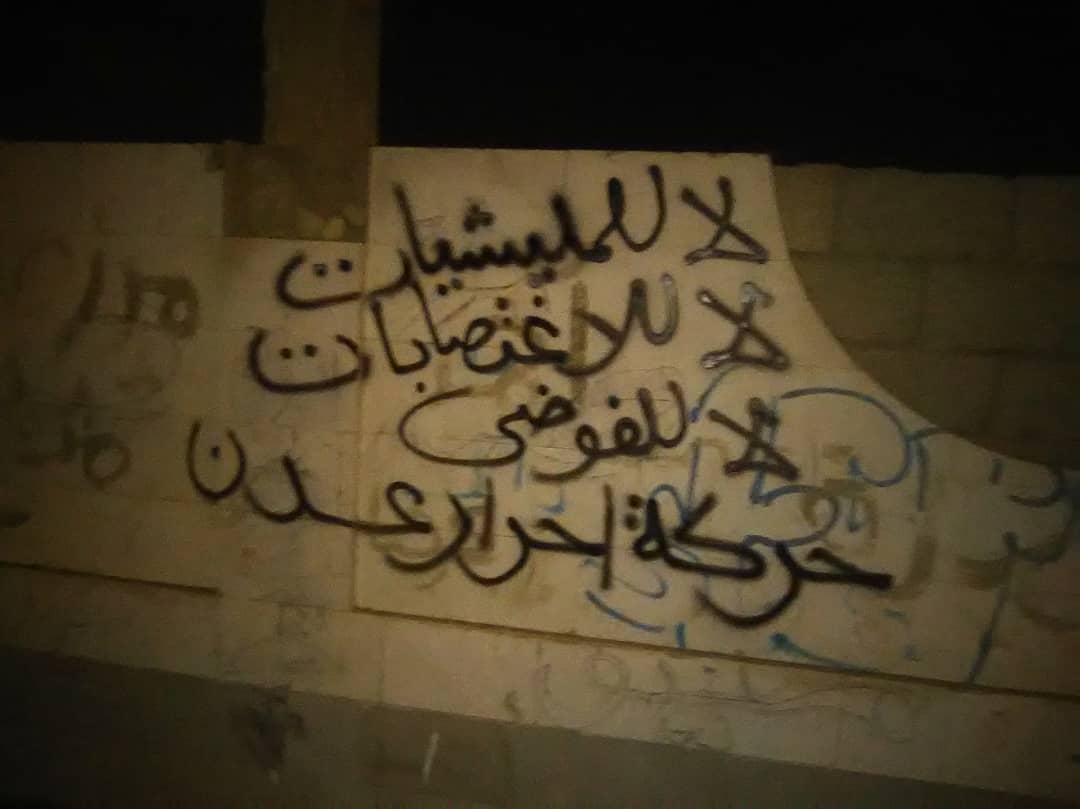 لا للمليشيات
لا للاغتصابات
لا للفوضى
حركة احرار عدن